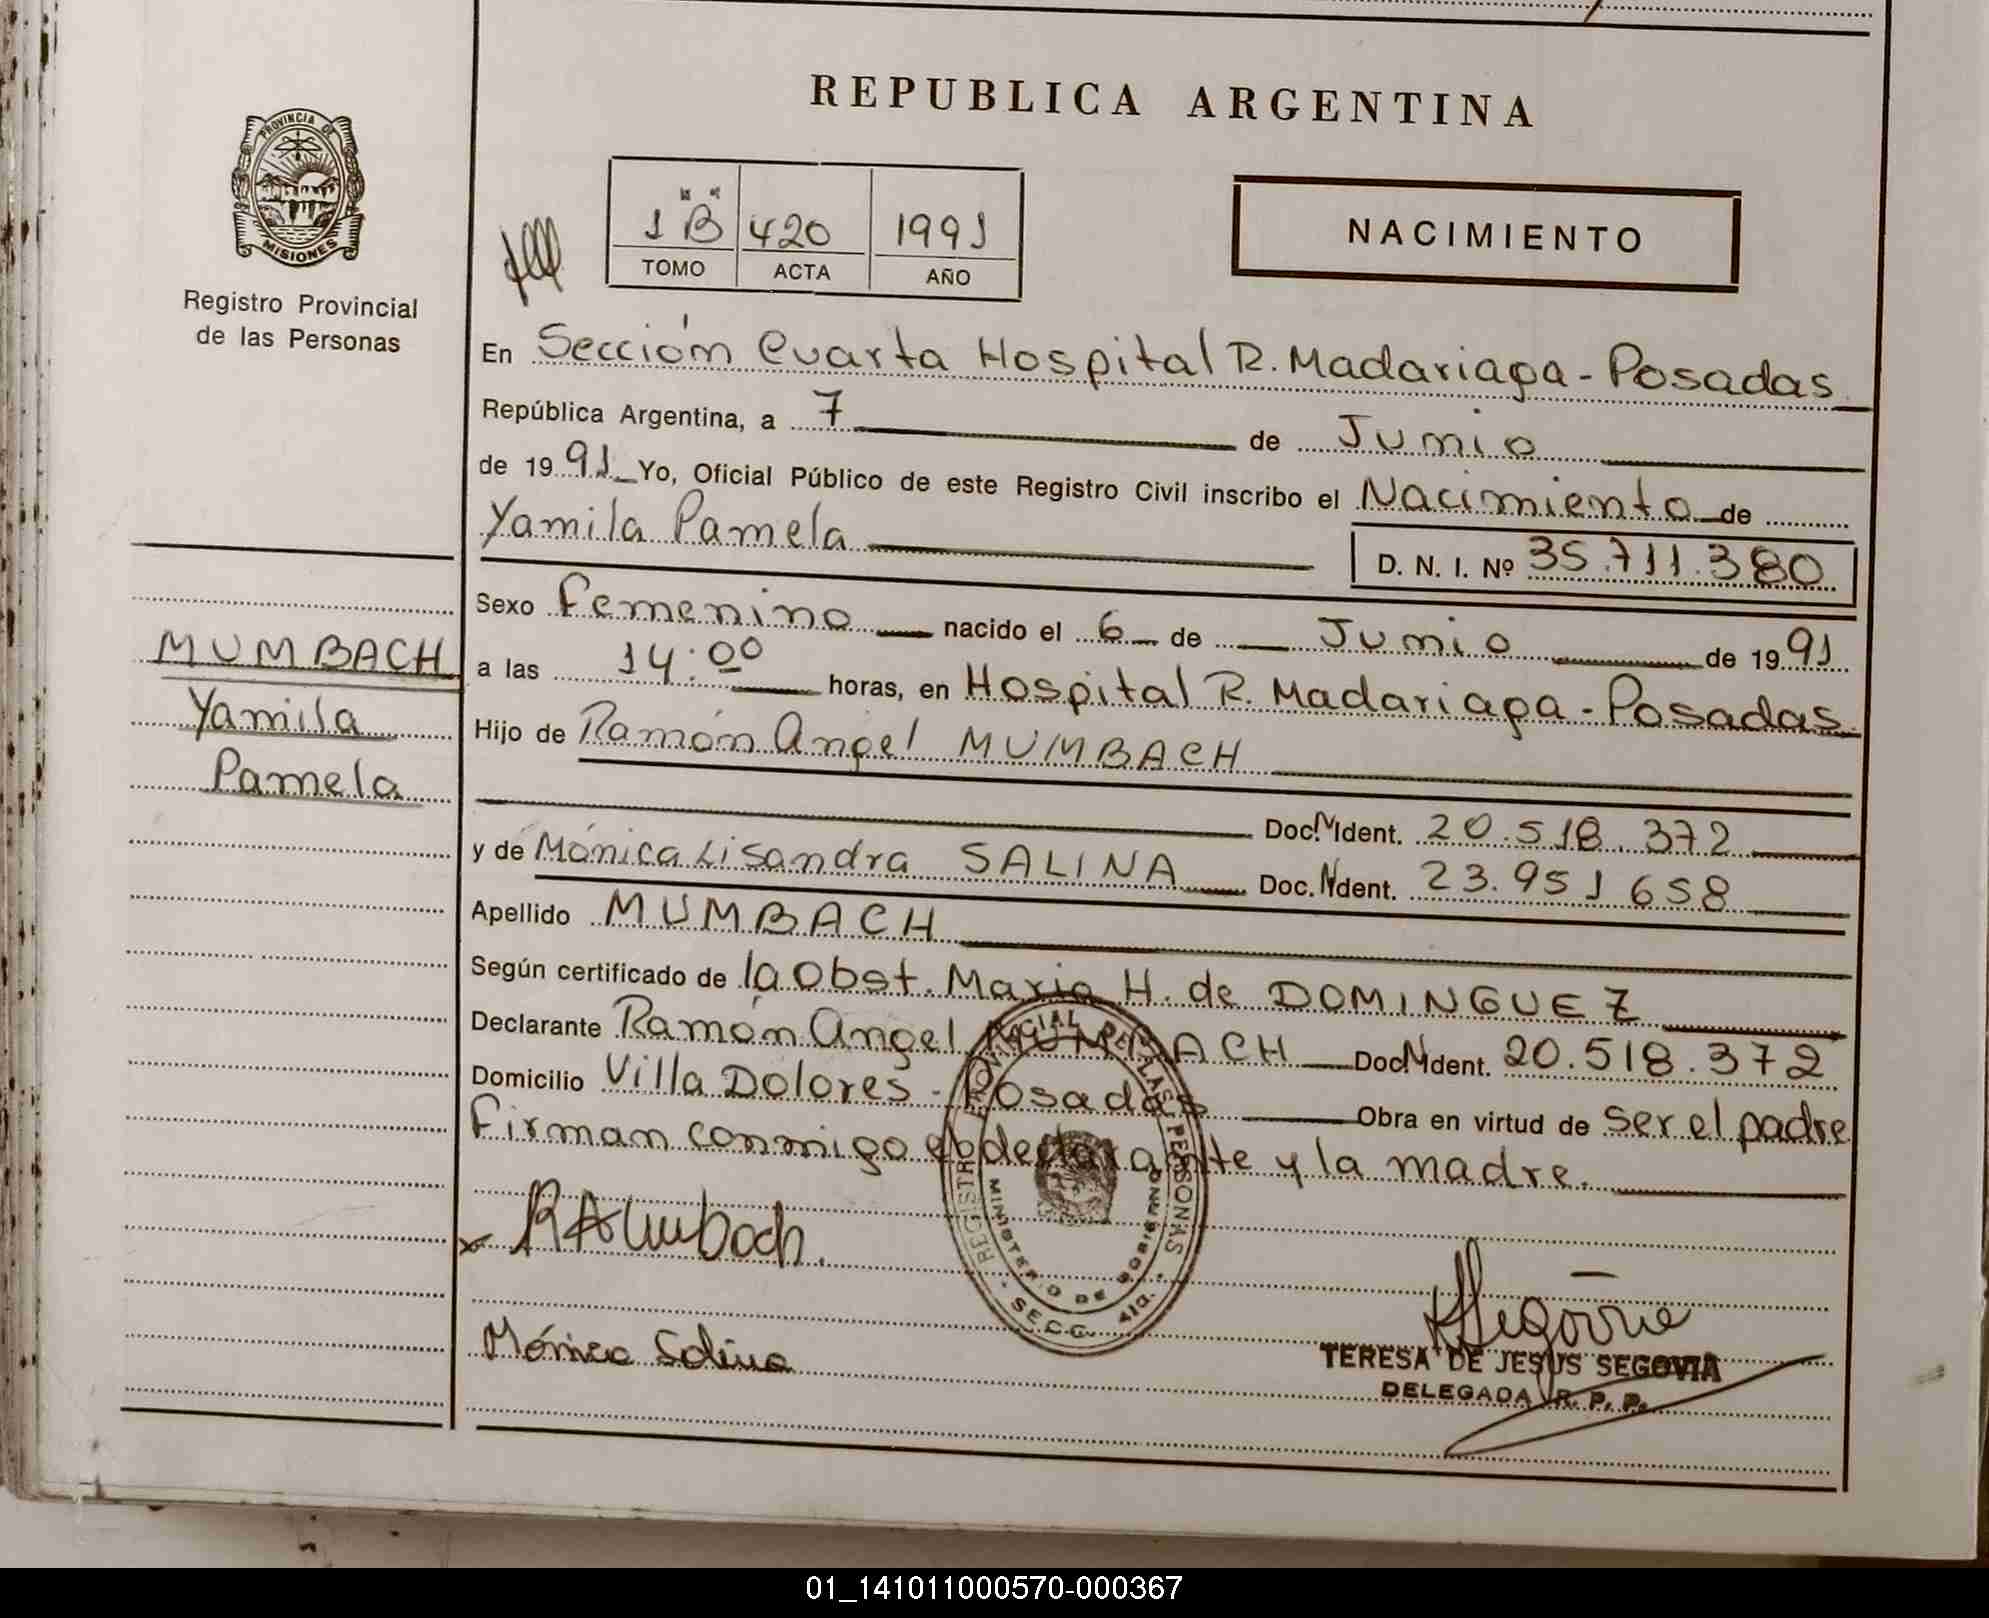 REPUBLICA ARGENTINA
PROVINCIA DE
MISIONES
Registro Provincial
de las Personas
1 "B" 420 1991
TOMO ACTA AÑO
NACIMIENTO
En Sección Cuarta Hospital R. Madariaga - Posadas
República Argentina, a 7 de Junio
de 1991 Yo, Oficial Público de este Registro Civil inscribo el Nacimiento de
Yamila Pamela
D. N. I. Nº 35.711.380
Sexo Femenino nacido el 6 de Junio de 1991
MUMBACH
Yamila
Pamela
a las 14:00 horas, en Hospital R. Madariaga - Posadas
Hijo de Ramón Angel MUMBACH
Doc. N Ident. 20.518.372
y de Mónica Lisandra SALINA Doc. N Ident. 23.951 658
Apellido MUMBACH
Según certificado de la Obst. Maria H. de DOMINGUEZ
Declarante Ramón Angel MUMBACH Doc N Ident. 20.518.372
Domicilio Villa Dolores - Posadas Obra en virtud de ser el padre
Firman conmigo el declarante y la madre.
REGISTRO PROVINCIAL DE LAS PERSONAS
MINISTERIO DE GOBIERNO
SECC. 4ta.
RAMumbach.
Mónica Salina
Segovia
TERESA DE JESUS SEGOVIA
DELEGADA R. P. P.
01_141011000570-000367